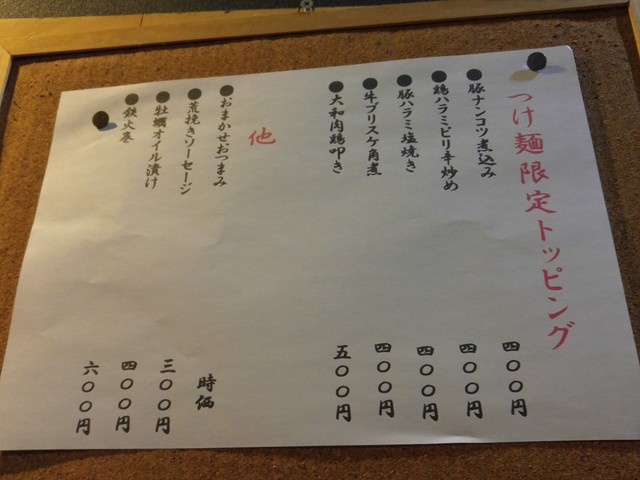 つけ麺限定トッピング
●豚ナンコツ煮込み 四〇〇円
●鶏ハラミピリ辛炒め 四〇〇円
●豚ハラミ塩焼き 四〇〇円
●牛ブリスケ角煮 四〇〇円
●大和肉鶏叩き 五〇〇円
他
●おまかせおつまみ 時価
●荒挽きソーセージ 三〇〇円
●牡蠣オイル漬け 四〇〇円
●鉄火巻 六〇〇円